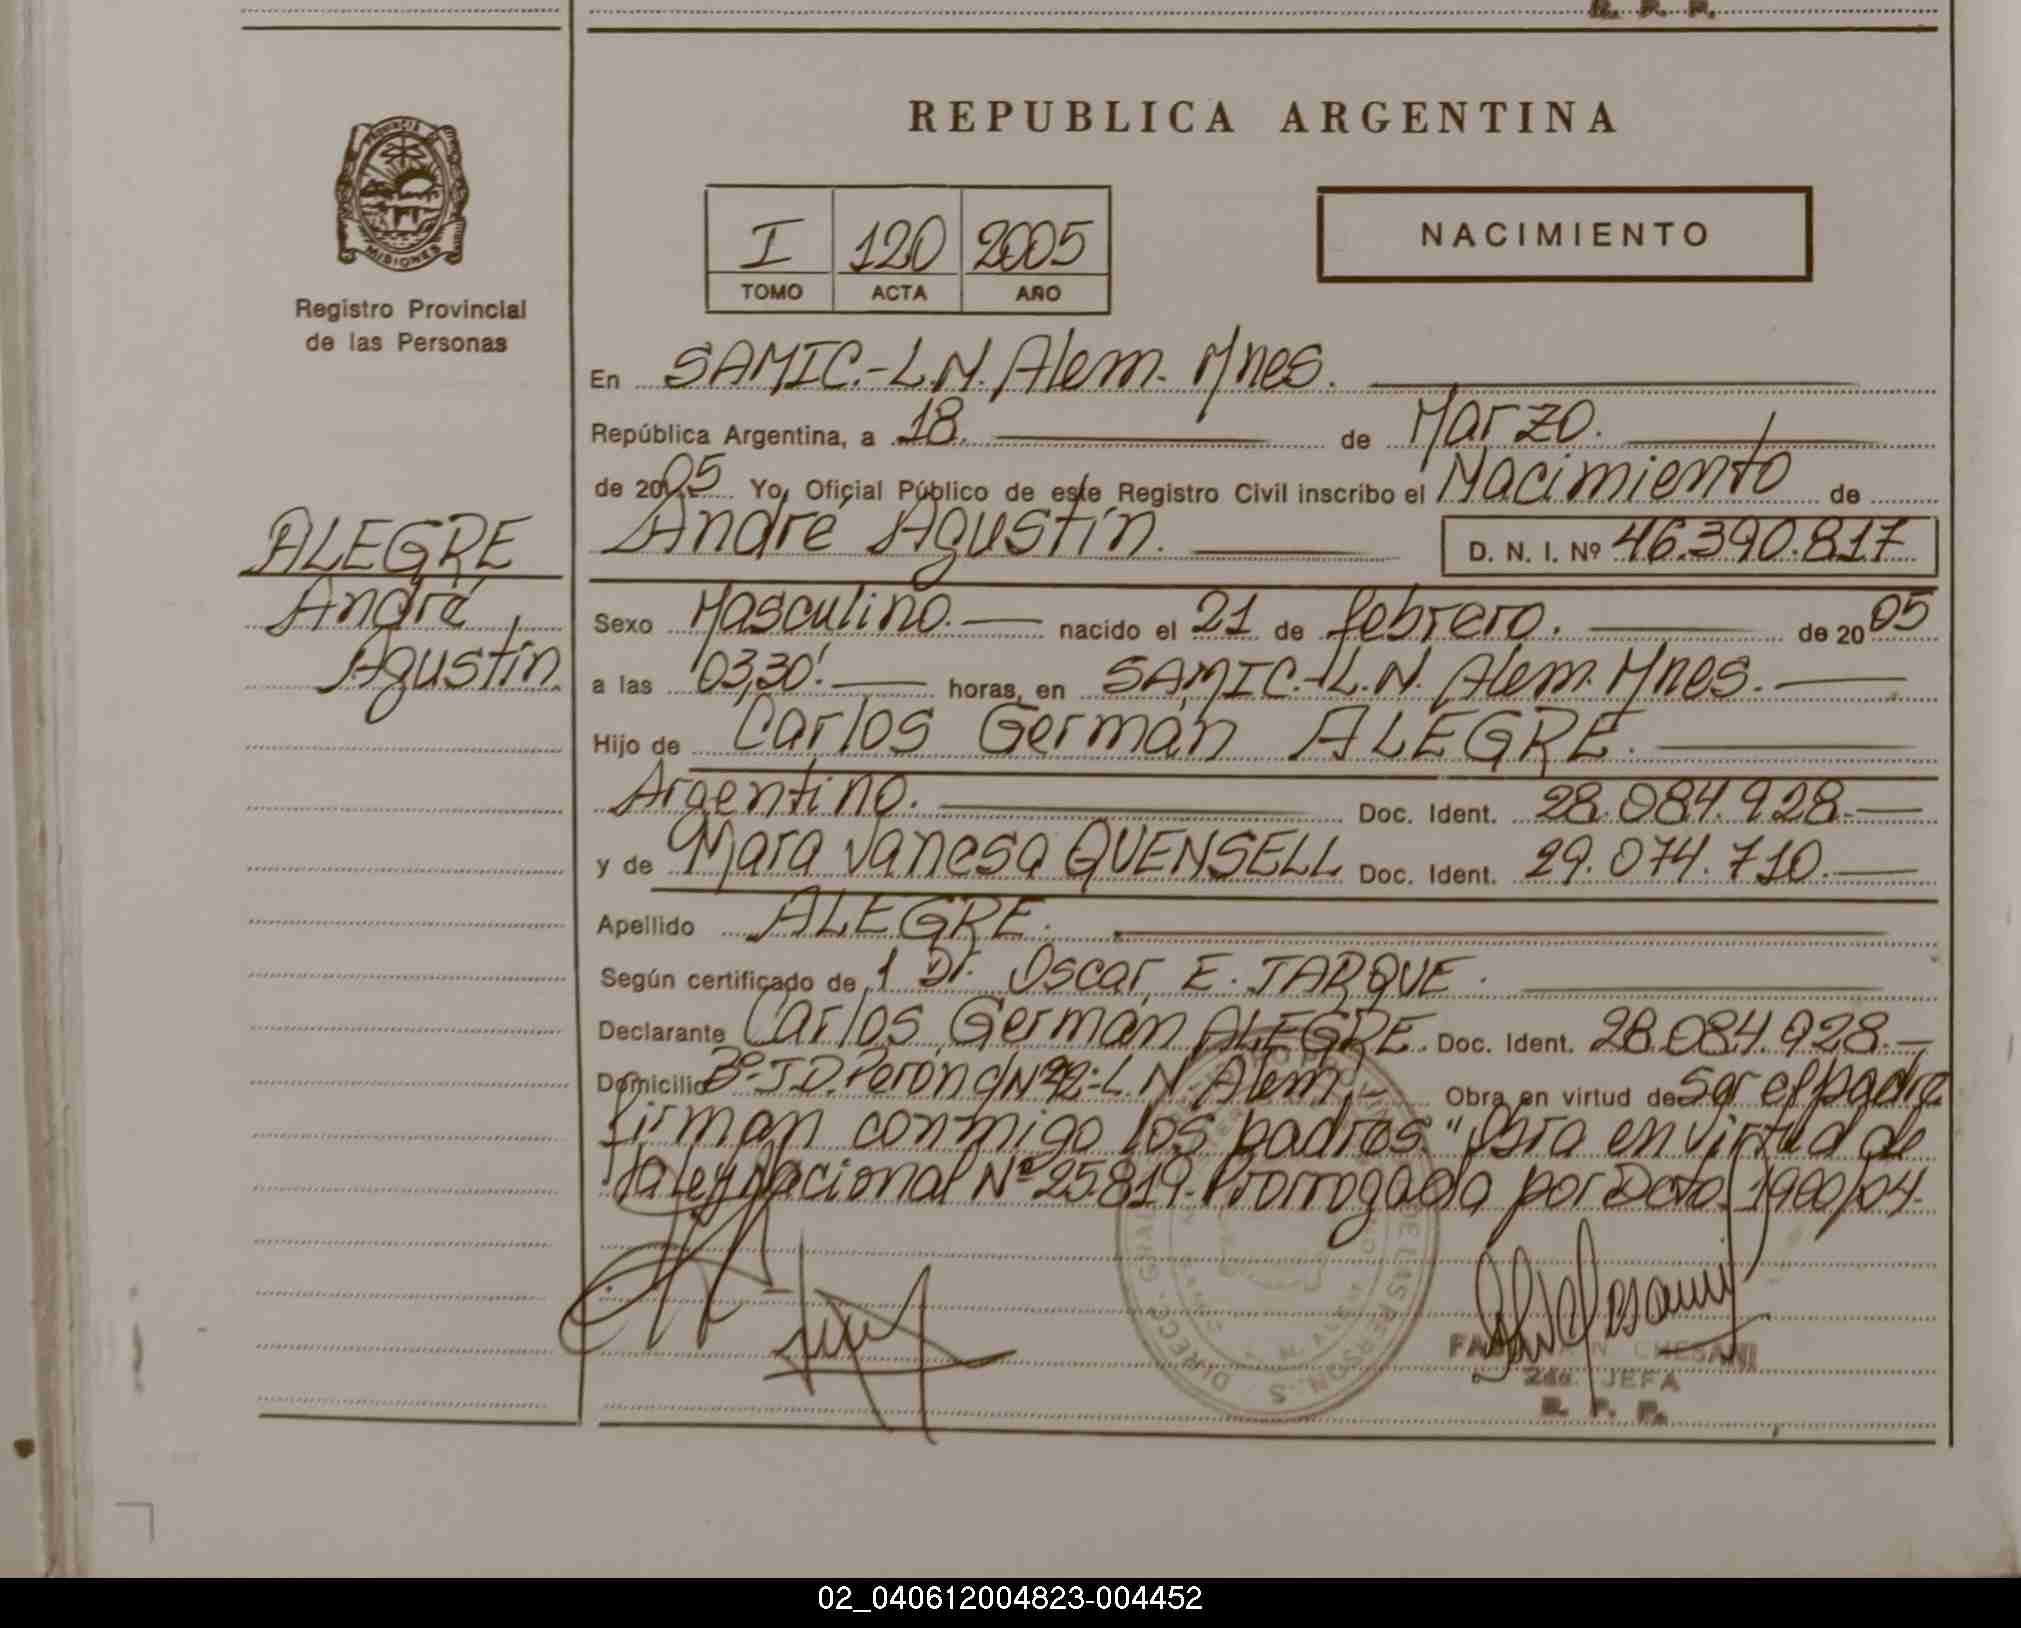 R. P. P.
PROVINCIA DE
MISIONES
Registro Provincial
de las Personas
ALEGRE
André
Agustín
REPUBLICA ARGENTINA
I 120 2005
TOMO ACTA AÑO
NACIMIENTO
En SAMIC.-L.N. Alem. Mnes.
República Argentina, a 18. de Marzo.
de 2005 Yo, Oficial Público de este Registro Civil inscribo el Nacimiento de
André Agustín. D. N. I. Nº 46.390.817
Sexo Masculino. nacido el 21 de febrero. de 2005
a las 03,30'. horas, en SAMIC.-L.N. Alem. Mnes.
Hijo de Carlos Germán ALEGRE.
Argentino. Doc. Ident. 28.084.928.-
y de Mara Vanesa QUENSELL Doc. Ident. 29.074.710.
Apellido ALEGRE.
Según certificado de 1 Dr. Oscar E. JARQUE.
Declarante Carlos Germán ALEGRE. Doc. Ident. 28.084.928.-
Domicilio Bº-J.D.Perón L.N. Alem.- Obra en virtud de ser el padre
firman conmigo los padres. "Obra en virtud de
la ley Nacional Nº 25.819. Prorrogada por Dcto. 1900/04.
CHESANI
2da. JEFA
R. P. P.
02_040612004823-004452